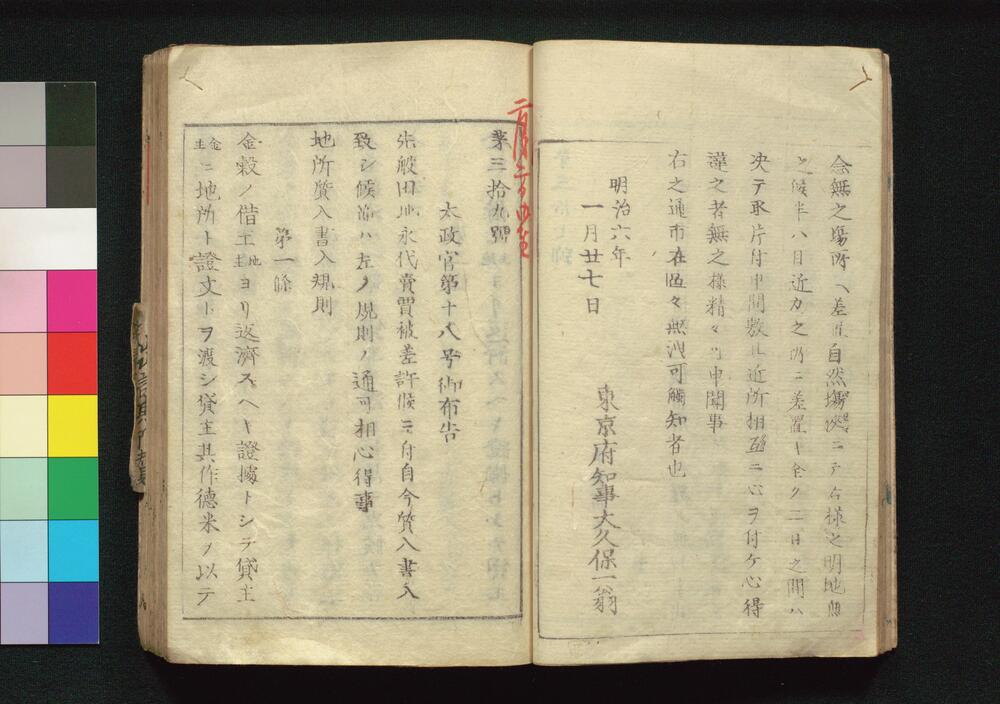 念無之場所ヘ差置自然場狹ニテ右様之明地無
之候半ハ目近カ之所ニ差置キ全ク二日之間ハ
決テ取片付申間敷且近所相互ニ心ヲ付ケ心得
違之者無之様精々可申聞事
右之通市在區々無洩可觸知者也
明治六年
一月廿七日
東京府知事大久保一翁
第三拾九號
太政官第十八号御布告
先般田地永代賣買被差許候ニ付自今質入書入
致シ候節ハ左ノ規則ノ通可相心得事
地所質入書入規則
第一條
金穀ノ借主地主ヨリ返濟スヘキ證據トシテ貸主
金主ニ地所ト證文トヲ渡シ貸主其作德米ヲ以テ